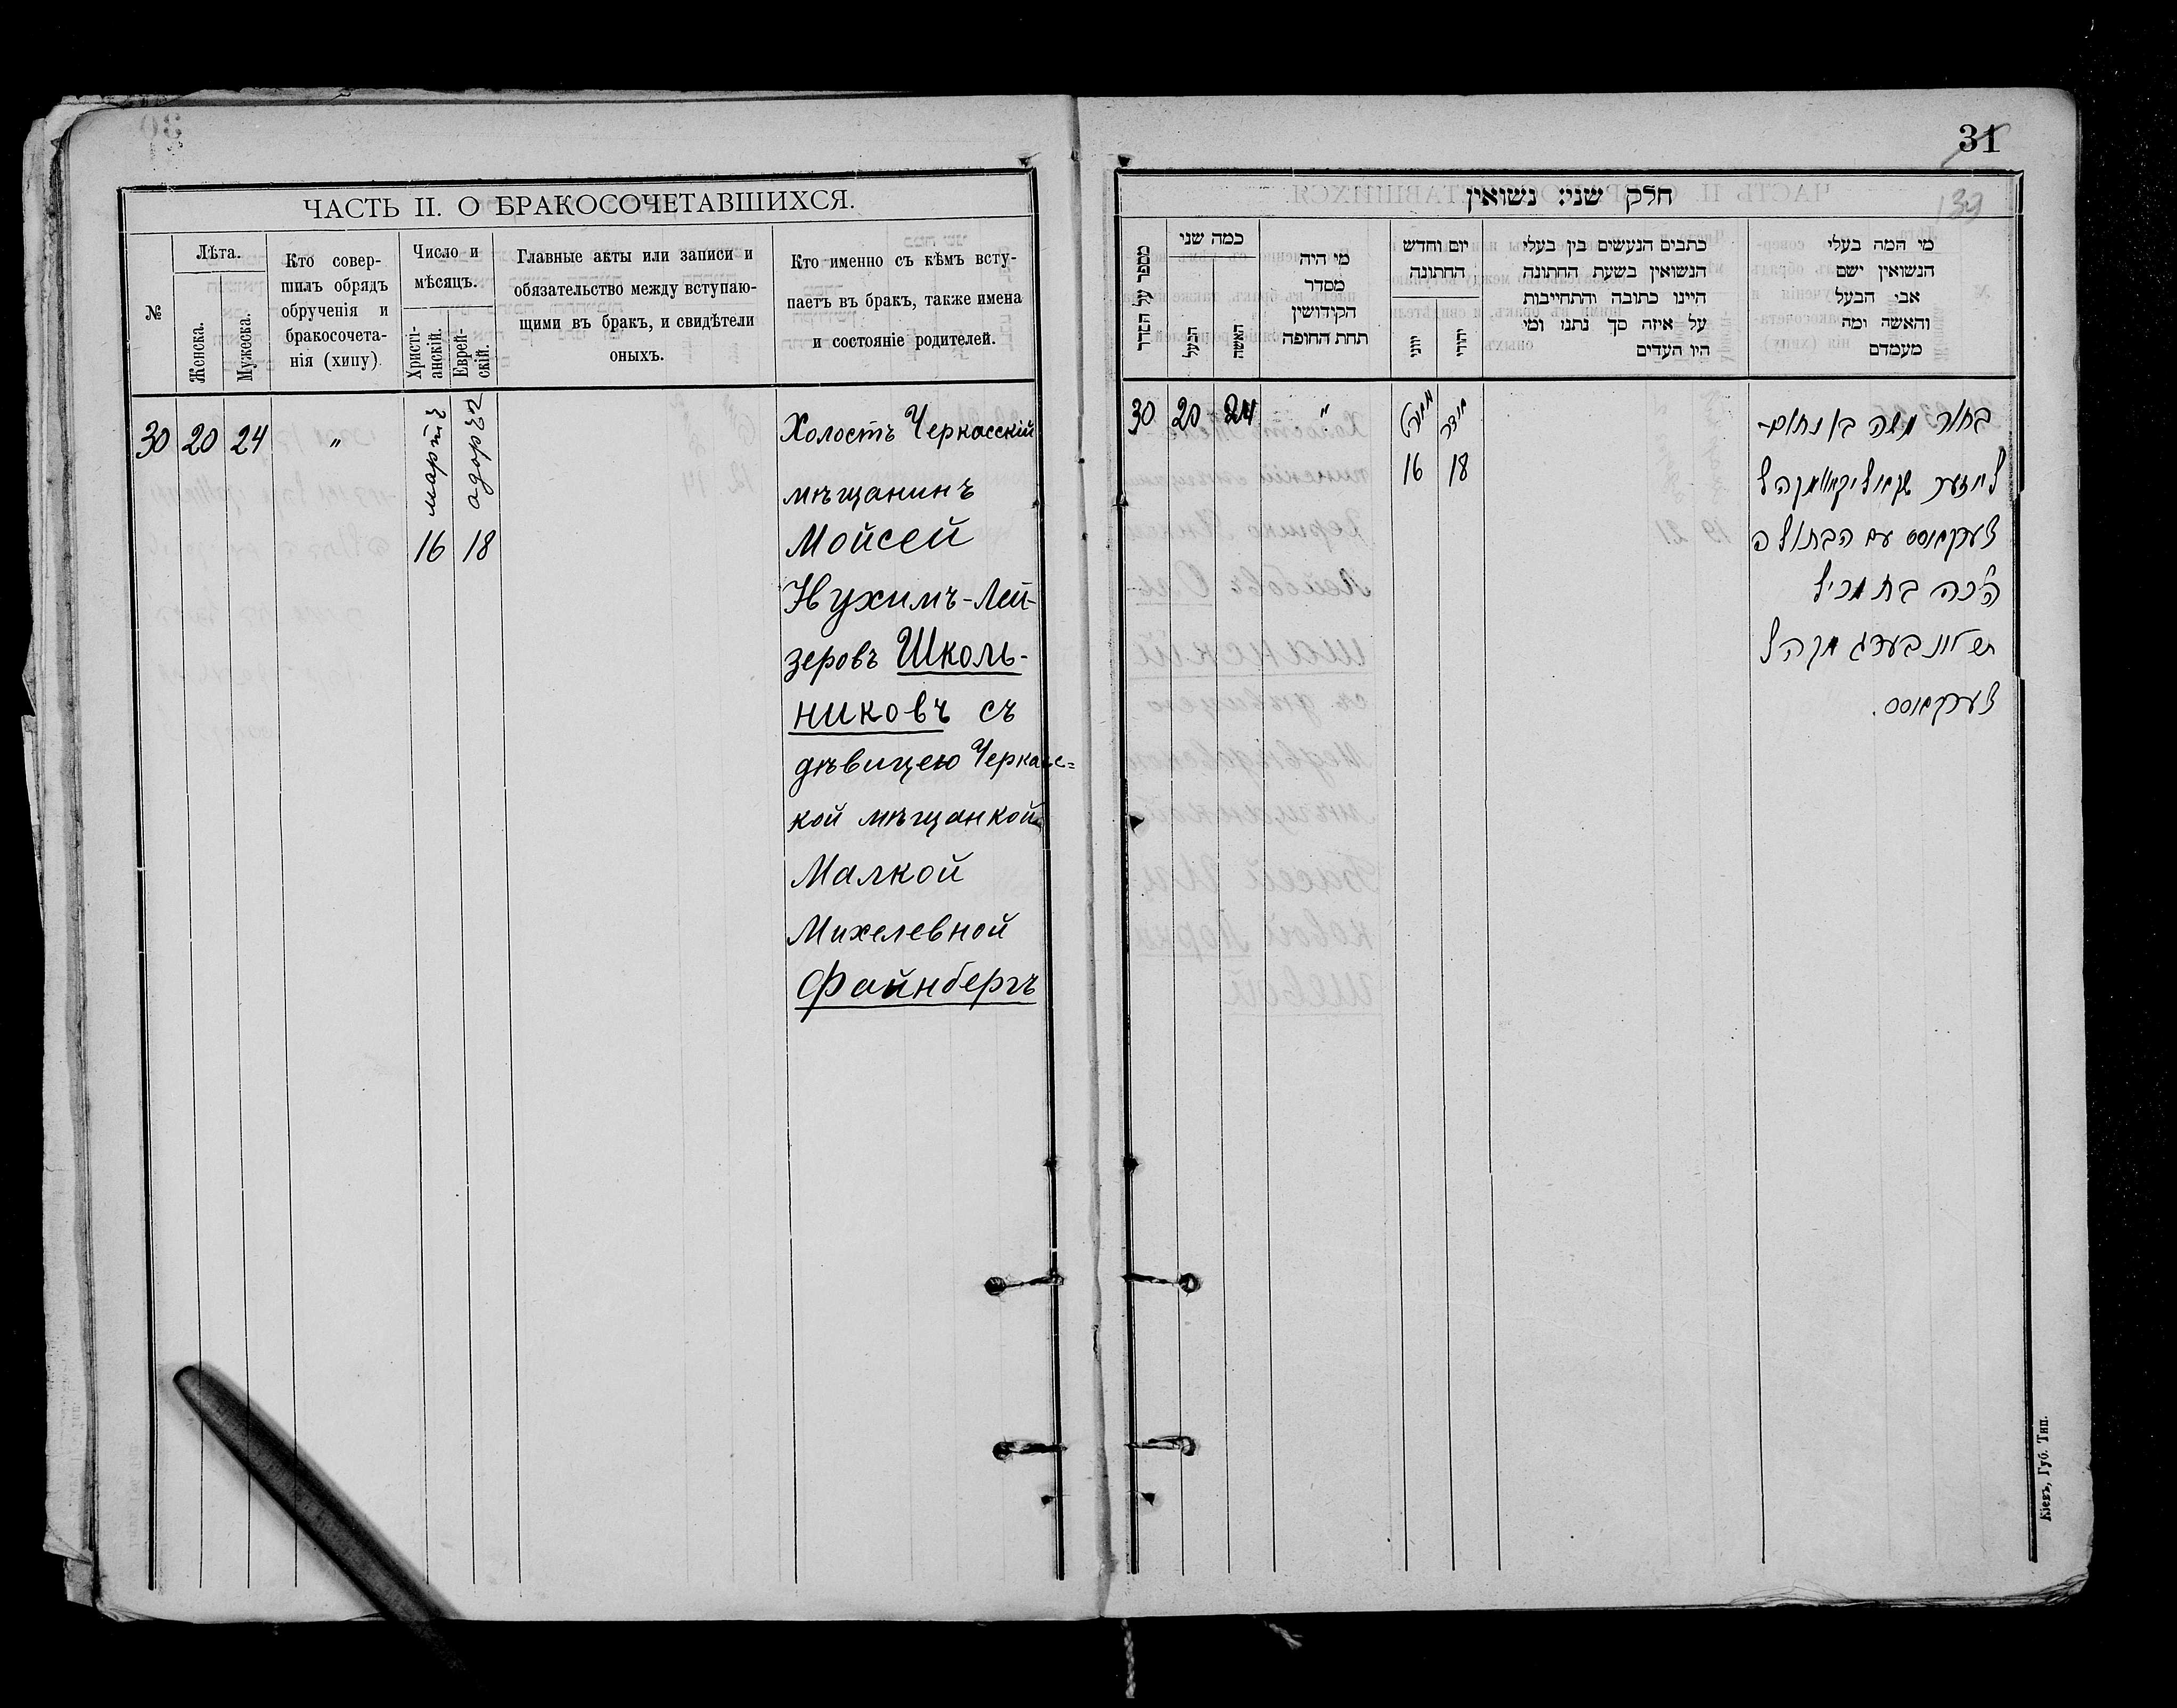 ЧАСТЬ II. О БРАКОСОЧЕТАВШИХСЯ.
№
Лѣта.
Женска.
Мужеска.
Кто совер-
шилъ обрядъ
обрученія и
бракосочета-
нія (хипу).
Число и
мѣсяцъ.
Христі-
анскій.
Еврей-
скій.
Главные акты или записи и
обязательство между вступаю-
щими въ бракъ, и свидѣтели
оныхъ.
Кто именно съ кѣмъ всту-
паетъ въ бракъ, также имена
и состояніе родителей.
30 20 24 "
мартъ
16 18
Холостъ Черкасскій
мѣщанинъ
Мойсей
Нухимъ-Лей-
зеровъ Школь-
никовъ съ
дѣвицею Черкасс=
кой мѣщанкой
Малкой
Михелевной
Файнбергъ
31
139
חלק שני: נשואין
מספר על הסדר
כמה שני
הבעל
האשה
מי היה
מסדר
הקידושין
תחת החופה
יום וחדש
החתונה
יוני
יהודי
כתבים הנעשים בין בעלי
הנשואין בשעת החתונה
היינו כתובה והתחייבות
על איזה סך נתנו ומי
היו העדים
מי המה בעלי
הנשואין ושם
אבי הבעל
והאשה ומה
מעמדם
30 20 24 "
מארט
אדר
16 18
בחור משה בן נחום-
לייזער שקאליקאוו מקהל
צערקאסס עם הבתולה
מלכה בת מיכל
פיינבערג מקהל
צערקאסס.
Кіевъ, Губ. Тип.